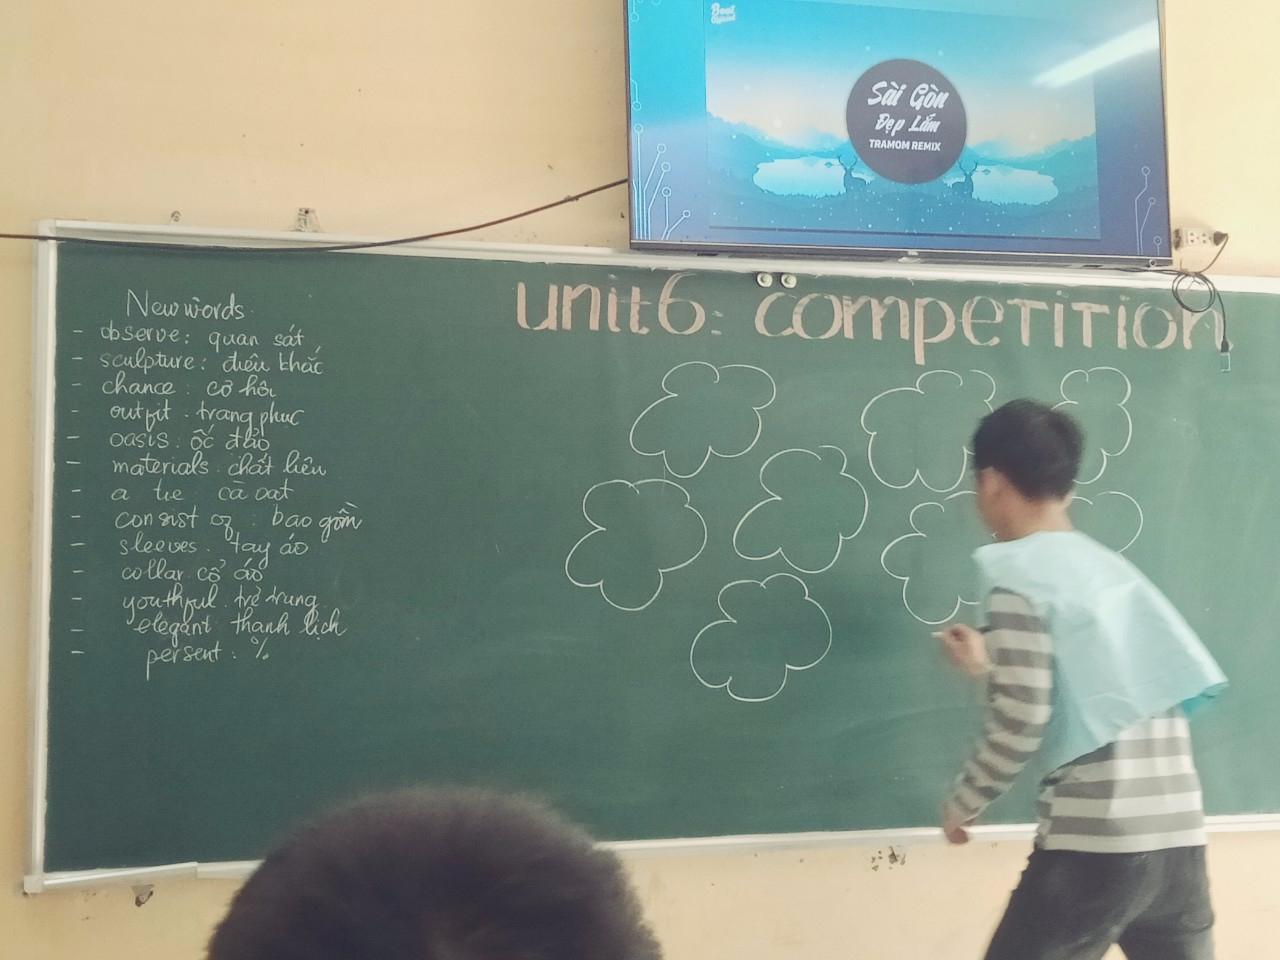 Beat
Sài Gòn
Đẹp Lắm
TRAMOM REMIX
unit6: competition
New words
- observe: quan sát
- sculpture: điêu khắc
- chance: cơ hội
- outfit: trang phục
- oasis: ốc đảo
- materials: chất liệu
- a tie: cà vạt
- consist of: bao gồm
- sleeves: tay áo
- collar: cổ áo
- youthful: trẻ trung
- elegant: thanh lịch
- persent: %